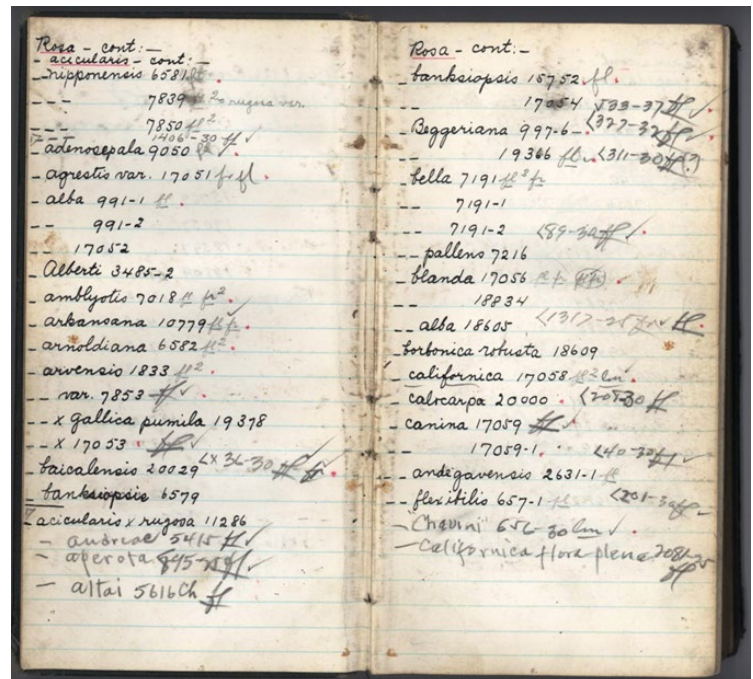 Rosa - cont:-
- acicularis - cont:-
- nipponensis 6581 fl.
- - - 7839 fl² rugosa var.
- - - 7850 fl²
1406-30 fl ✓
- adenosepala 9050 fl.
- agrestis var. 17051 fr fl.
- alba 991-1 fl.
- - 991-2
- - 17052
- Alberti 3485-2
- amblyotis 7018 fl fr².
- arkansana 10779 fl fr.
- arnoldiana 6582 fl².
- arvensis 1833 fl².
- - var. 7853 fl ✓.
- - x gallica pumila 19378
- - x 17053 fl ✓.
- baicalensis 20029 <x 36-30 fl
- banksiopsis 6579
acicularis x rugosa 11286
- andreae 5415 fl ✓
- aperota 895-29 fl ✓
- altai 5616 Ch fl
Rosa - cont:-
- banksiopsis 15752 fl.
- - 17054 533-37 fl ✓
- Beggeriana 997-6 - <327-32 fl ✓
- - 19366 fl. <311-30 fl (?)
- bella 7191 fl² fr
- - 7191-1
- - 7191-2 <89-30 fl ✓.
- - pallens 7216
- blanda 17056 fl fr
- - 18834
- - alba 18605 <1317-25 fl.
borbonica robusta 18609
- californica 17058 fl² lm.
- calocarpa 20000 <205-30 fl
- canina 17059 fl ✓
- - 17059-1. <40-30 fl ✓
- - andegavensis 2631-1 fl
- - flexibilis 657-1 fl <201-30 fl
- Chavini 656-30 lm ✓.
- Californica flora plena 208
fl